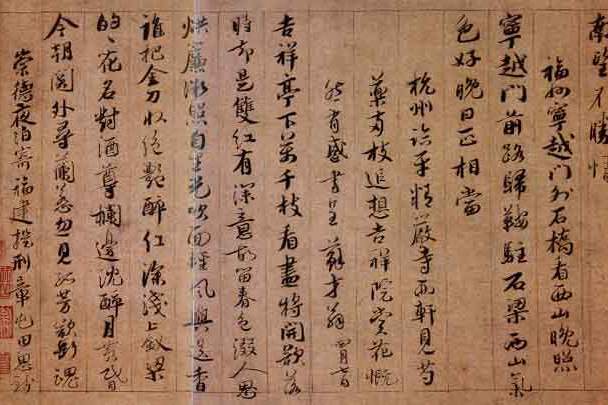 南望不勝情
福州寧越門外石橋看西山晚照
寧越門前路歸鞍駐石梁西山氣
色好晚日正相當
杭州臨平精嚴寺西軒見芍
藥兩枝追想吉祥院賞花慨
然有感書呈蘇才翁四月七日
吉祥亭下萬千枝看盡將開欲落
時却是雙紅有深意故留春色綴人思
烘簾微照自生光吹面輕風與送香
誰把金刀收絕艷醉紅深淺上釵梁
的〻花名對酒尊欄邊沈醉月黃昏
今朝關外尋蘭蕙忽見孤芳欲斷魂
崇德夜泊寄福建提刑章屯田思錢